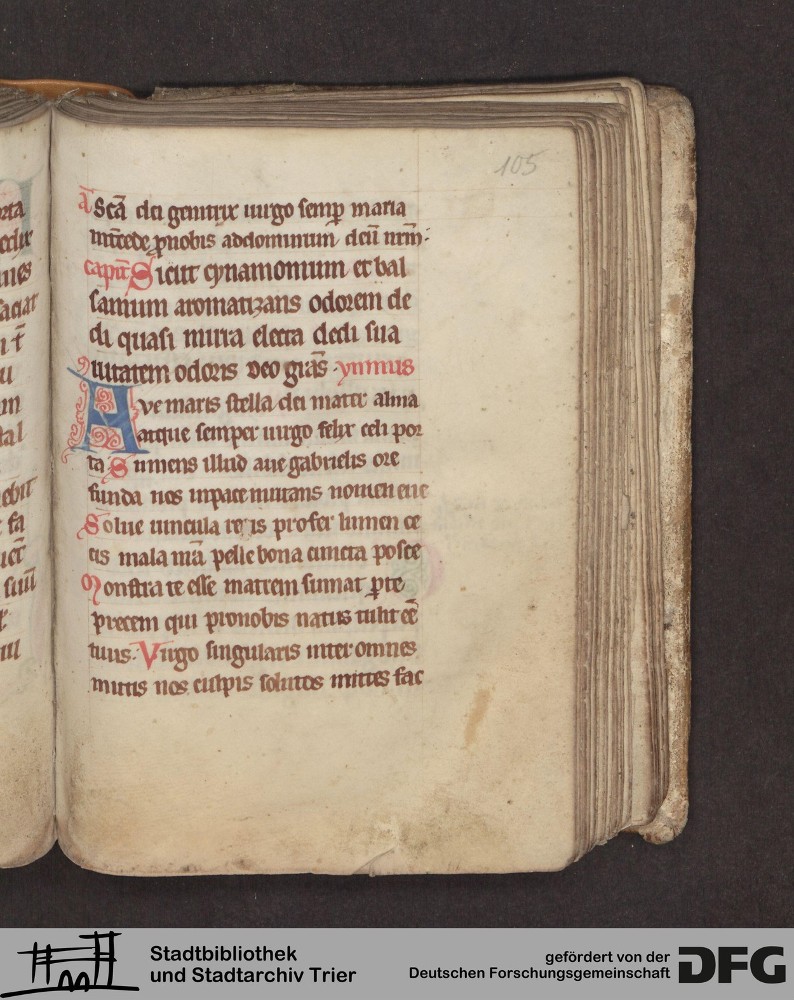 105
a Scā dei genitrix uirgo semp maria
intcede pnobis addominum deū nrm̄.
capit̄ Sicut cynamonium et bal
samum aromatizans odorem de
di quasi mirra electa dedi sua
uitatem odoris deo grās. ymnus
Ave maris stella dei mater alma
atque semper uirgo felix celi por
ta Sumens illud aue gabrielis ore
funda nos inpace mutans nomen eue
Solue uincula reis profer lumen ce
cis mala nrā pelle bona cuncta posce
Monstra te esse matrem sumat pte
precem qui pronobis natus tulit eē
tuus. Virgo singularis inter omnes
mitis nos culpis solutos mittes fac
Stadtbibliothek
und Stadtarchiv Trier
gefördert von der
Deutschen Forschungsgemeinschaft
DFG